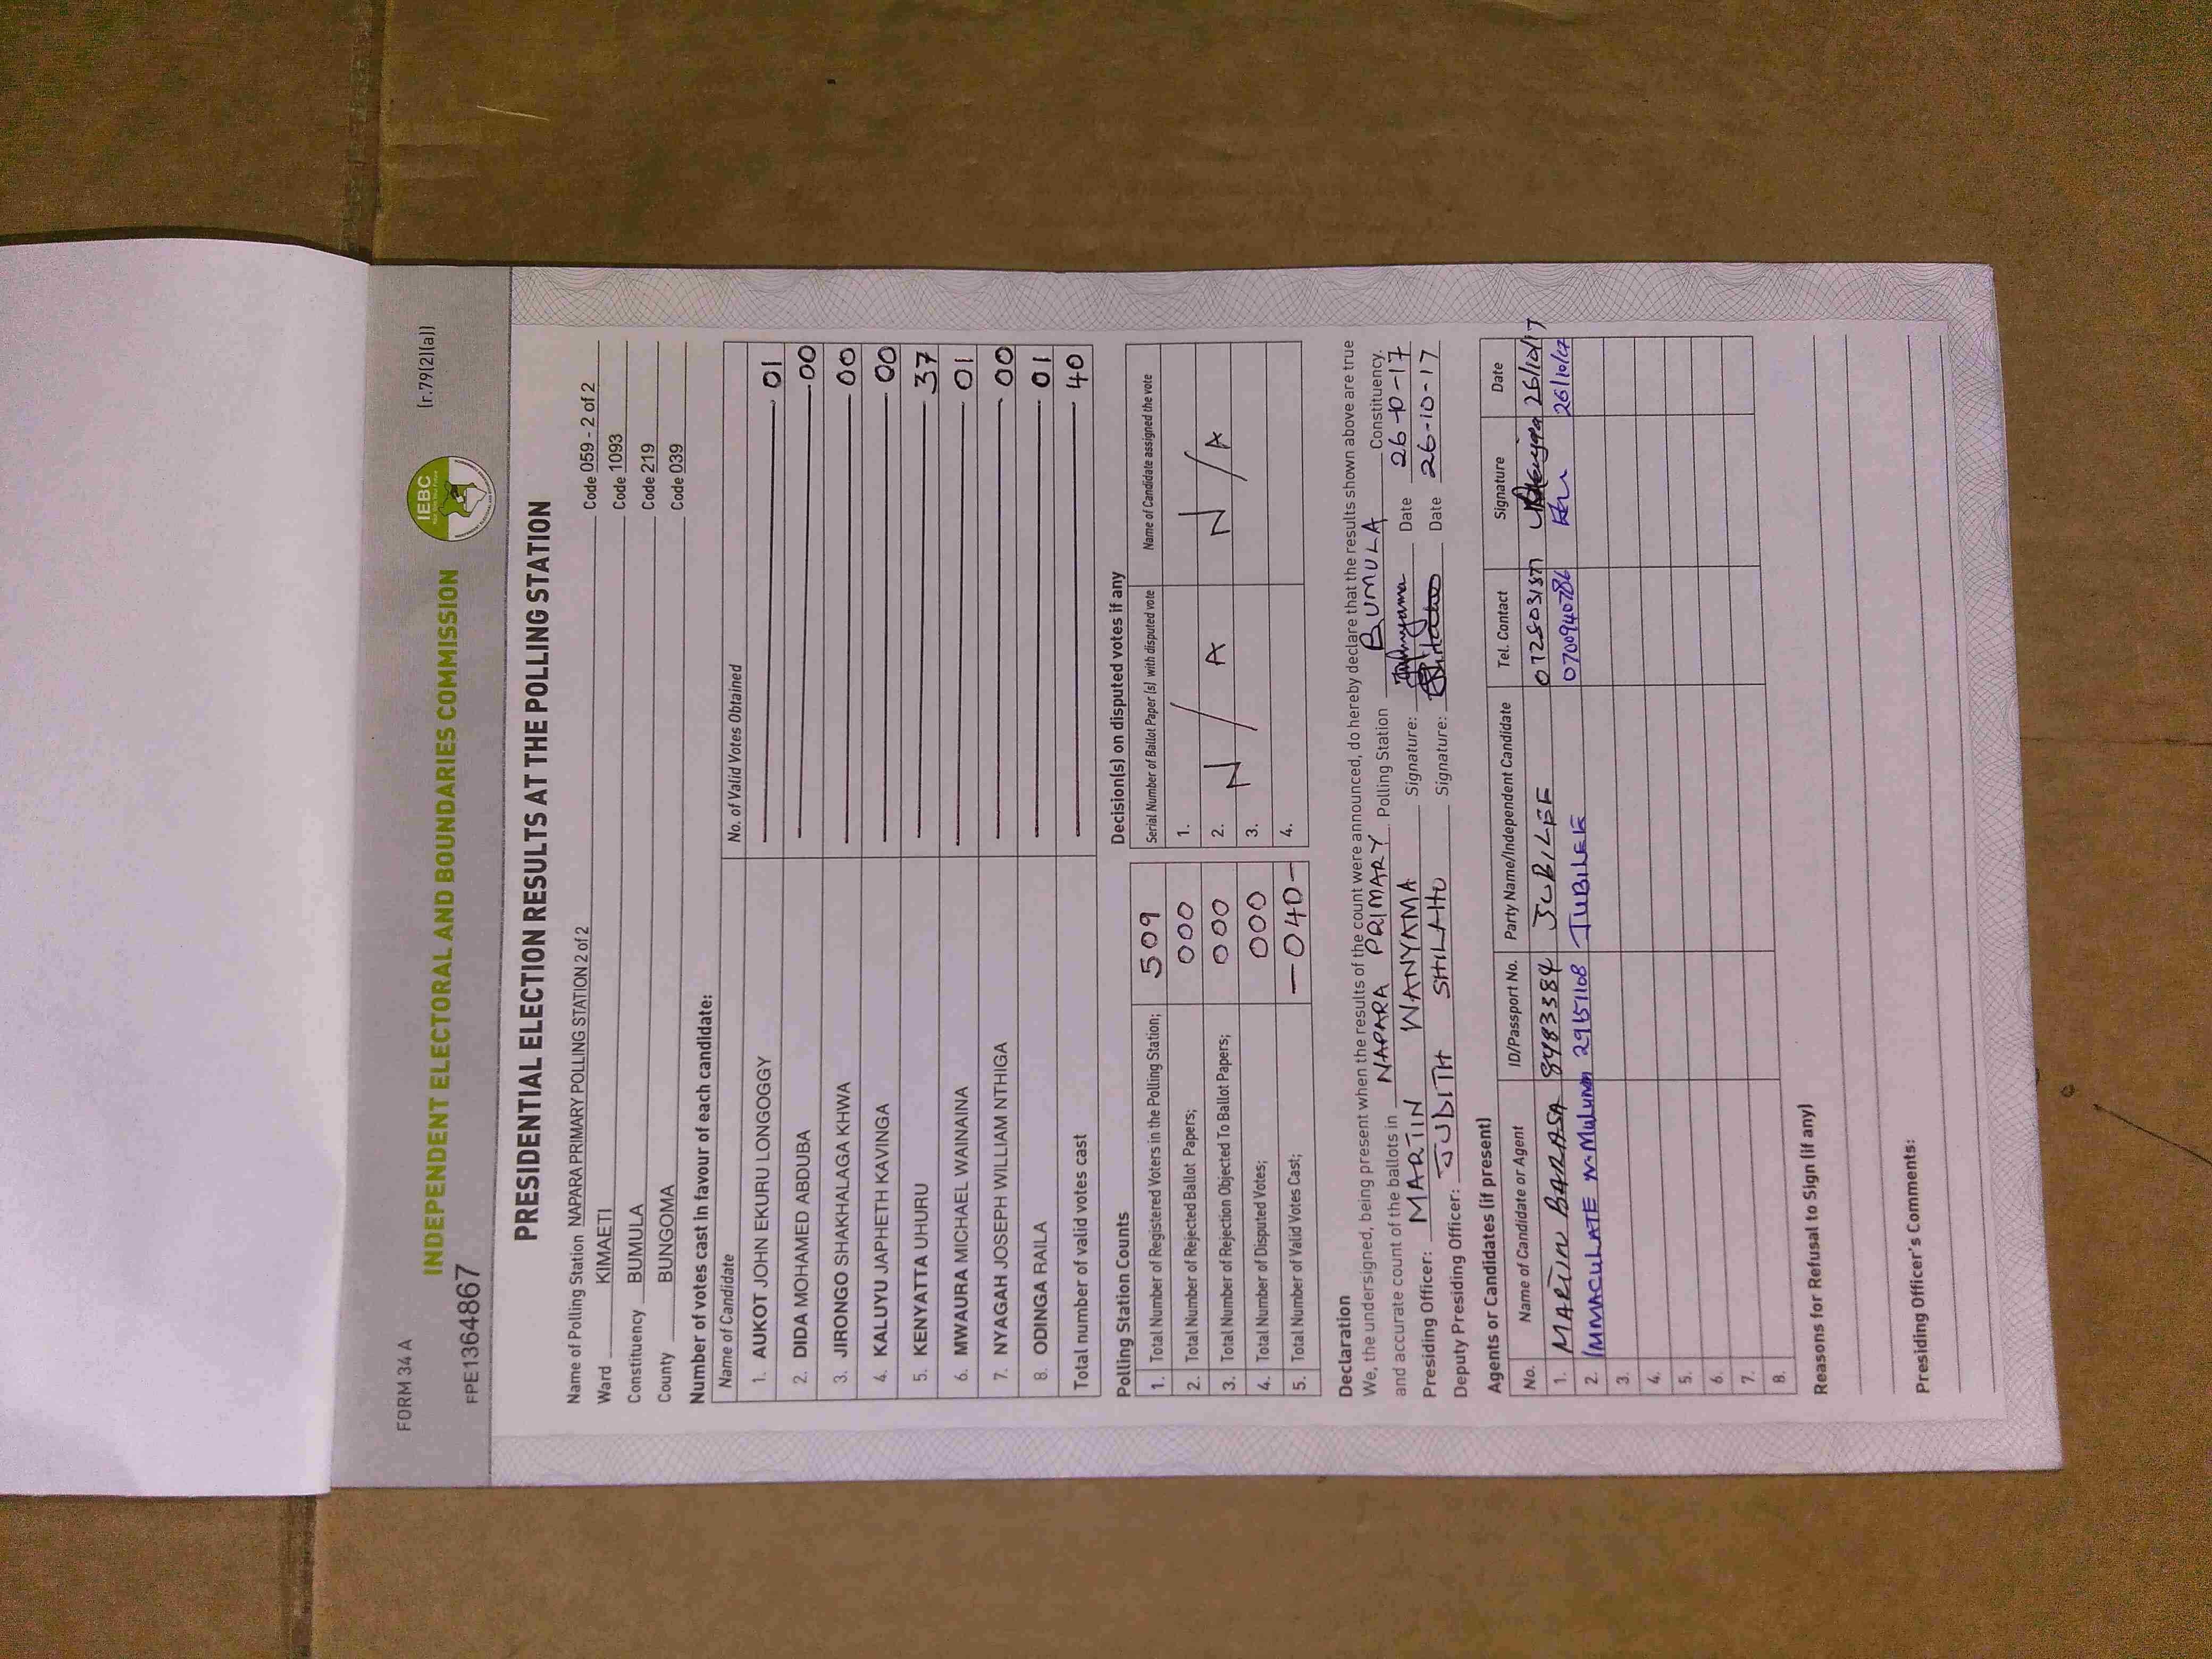 FORM 34 A
(r.79(2)(a))
INDEPENDENT ELECTORAL AND BOUNDARIES COMMISSION
IEBC
FPE1364867
PRESIDENTIAL ELECTION RESULTS AT THE POLLING STATION
Name of Polling Station NAPARA PRIMARY POLLING STATION 2 of 2 Code 059 - 2 of 2
Ward KIMAETI Code 1093
Constituency BUMULA Code 219
County BUNGOMA Code 039
Number of votes cast in favour of each candidate:
Name of Candidate No. of Valid Votes Obtained
1. AUKOT JOHN EKURU LONGOGGY 01
2. DIDA MOHAMED ABDUBA 00
3. JIRONGO SHAKHALAGA KHWA 00
4. KALUYU JAPHETH KAVINGA 00
5. KENYATTA UHURU 37
6. MWAURA MICHAEL WAINAINA 01
7. NYAGAH JOSEPH WILLIAM NTHIGA 00
8. ODINGA RAILA 01
Total number of valid votes cast 40
Polling Station Counts
1. Total Number of Registered Voters in the Polling Station; 509
2. Total Number of Rejected Ballot Papers; 000
3. Total Number of Rejection Objected To Ballot Papers; 000
4. Total Number of Disputed Votes; 000
5. Total Number of Valid Votes Cast; - 040 -
Decision(s) on disputed votes if any
Serial Number of Ballot Paper (s) with disputed vote Name of Candidate assigned the vote
1.
2. N/A N/A
3.
4.
Declaration
We, the undersigned, being present when the results of the count were announced, do hereby declare that the results shown above are true
and accurate count of the ballots in NAPARA PRIMARY Polling Station BUMULA Constituency.
Presiding Officer: MARTIN WANYAMA Signature: Date 26-10-17
Deputy Presiding Officer: JUDITH SHILAHO Signature: Date 26-10-17
Agents or Candidates (if present)
No. Name of Candidate or Agent ID/Passport No. Party Name/Independent Candidate Tel. Contact Signature Date
1. MARTIN BARASA JUBILEE 26/10/17
2. IMMACULATE N. 29571108 JUBILEE 0700940786 26/10/17
3.
4.
5.
6.
7.
8.
Reasons for Refusal to Sign (if any)
Presiding Officer's Comments: